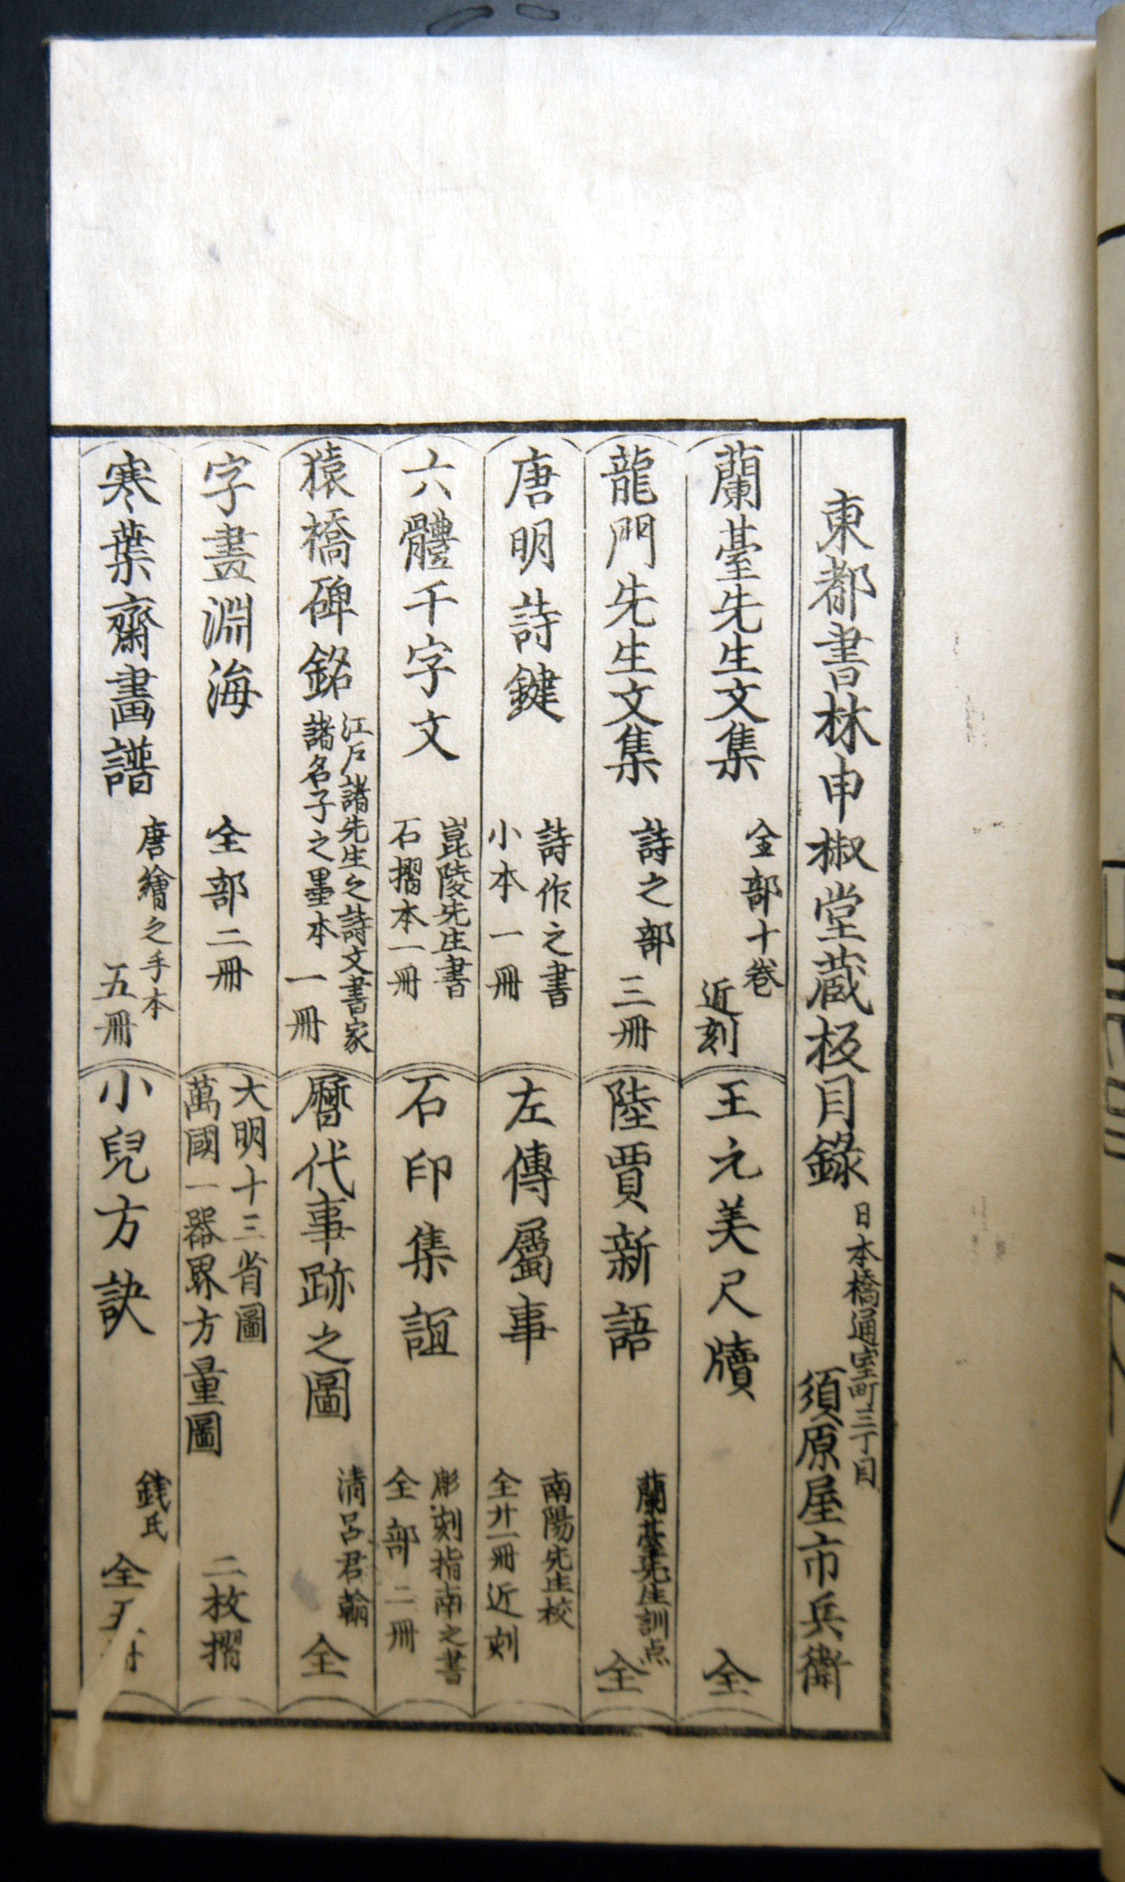 東都書林申椒堂蔵板目錄
日本橋通室町三丁目
須原屋市兵衛
蘭臺先生文集
全部十卷
近刻
王元美尺牘
全
龍門先生文集
詩之部
三冊
陸賈新語
蘭臺先生訓点
全
唐明詩鍵
詩作之書
小本一冊
左傳屬事
南陽先生校
全廿一冊近刻
六體千字文
崑陵先生書
石摺本一冊
石印集誼
彫刻指南之書
全部二冊
猿橋碑銘
江戶諸先生之詩文書家
諸名子之墨本
一冊
曆代事跡之圖
清呂君翰
全
字畫淵海
全部二冊
大明十三省圖
萬國一器界方量圖
二枚摺
寒葉齋畫譜
唐繪之手本
五冊
小兒方訣
錢氏
全五冊